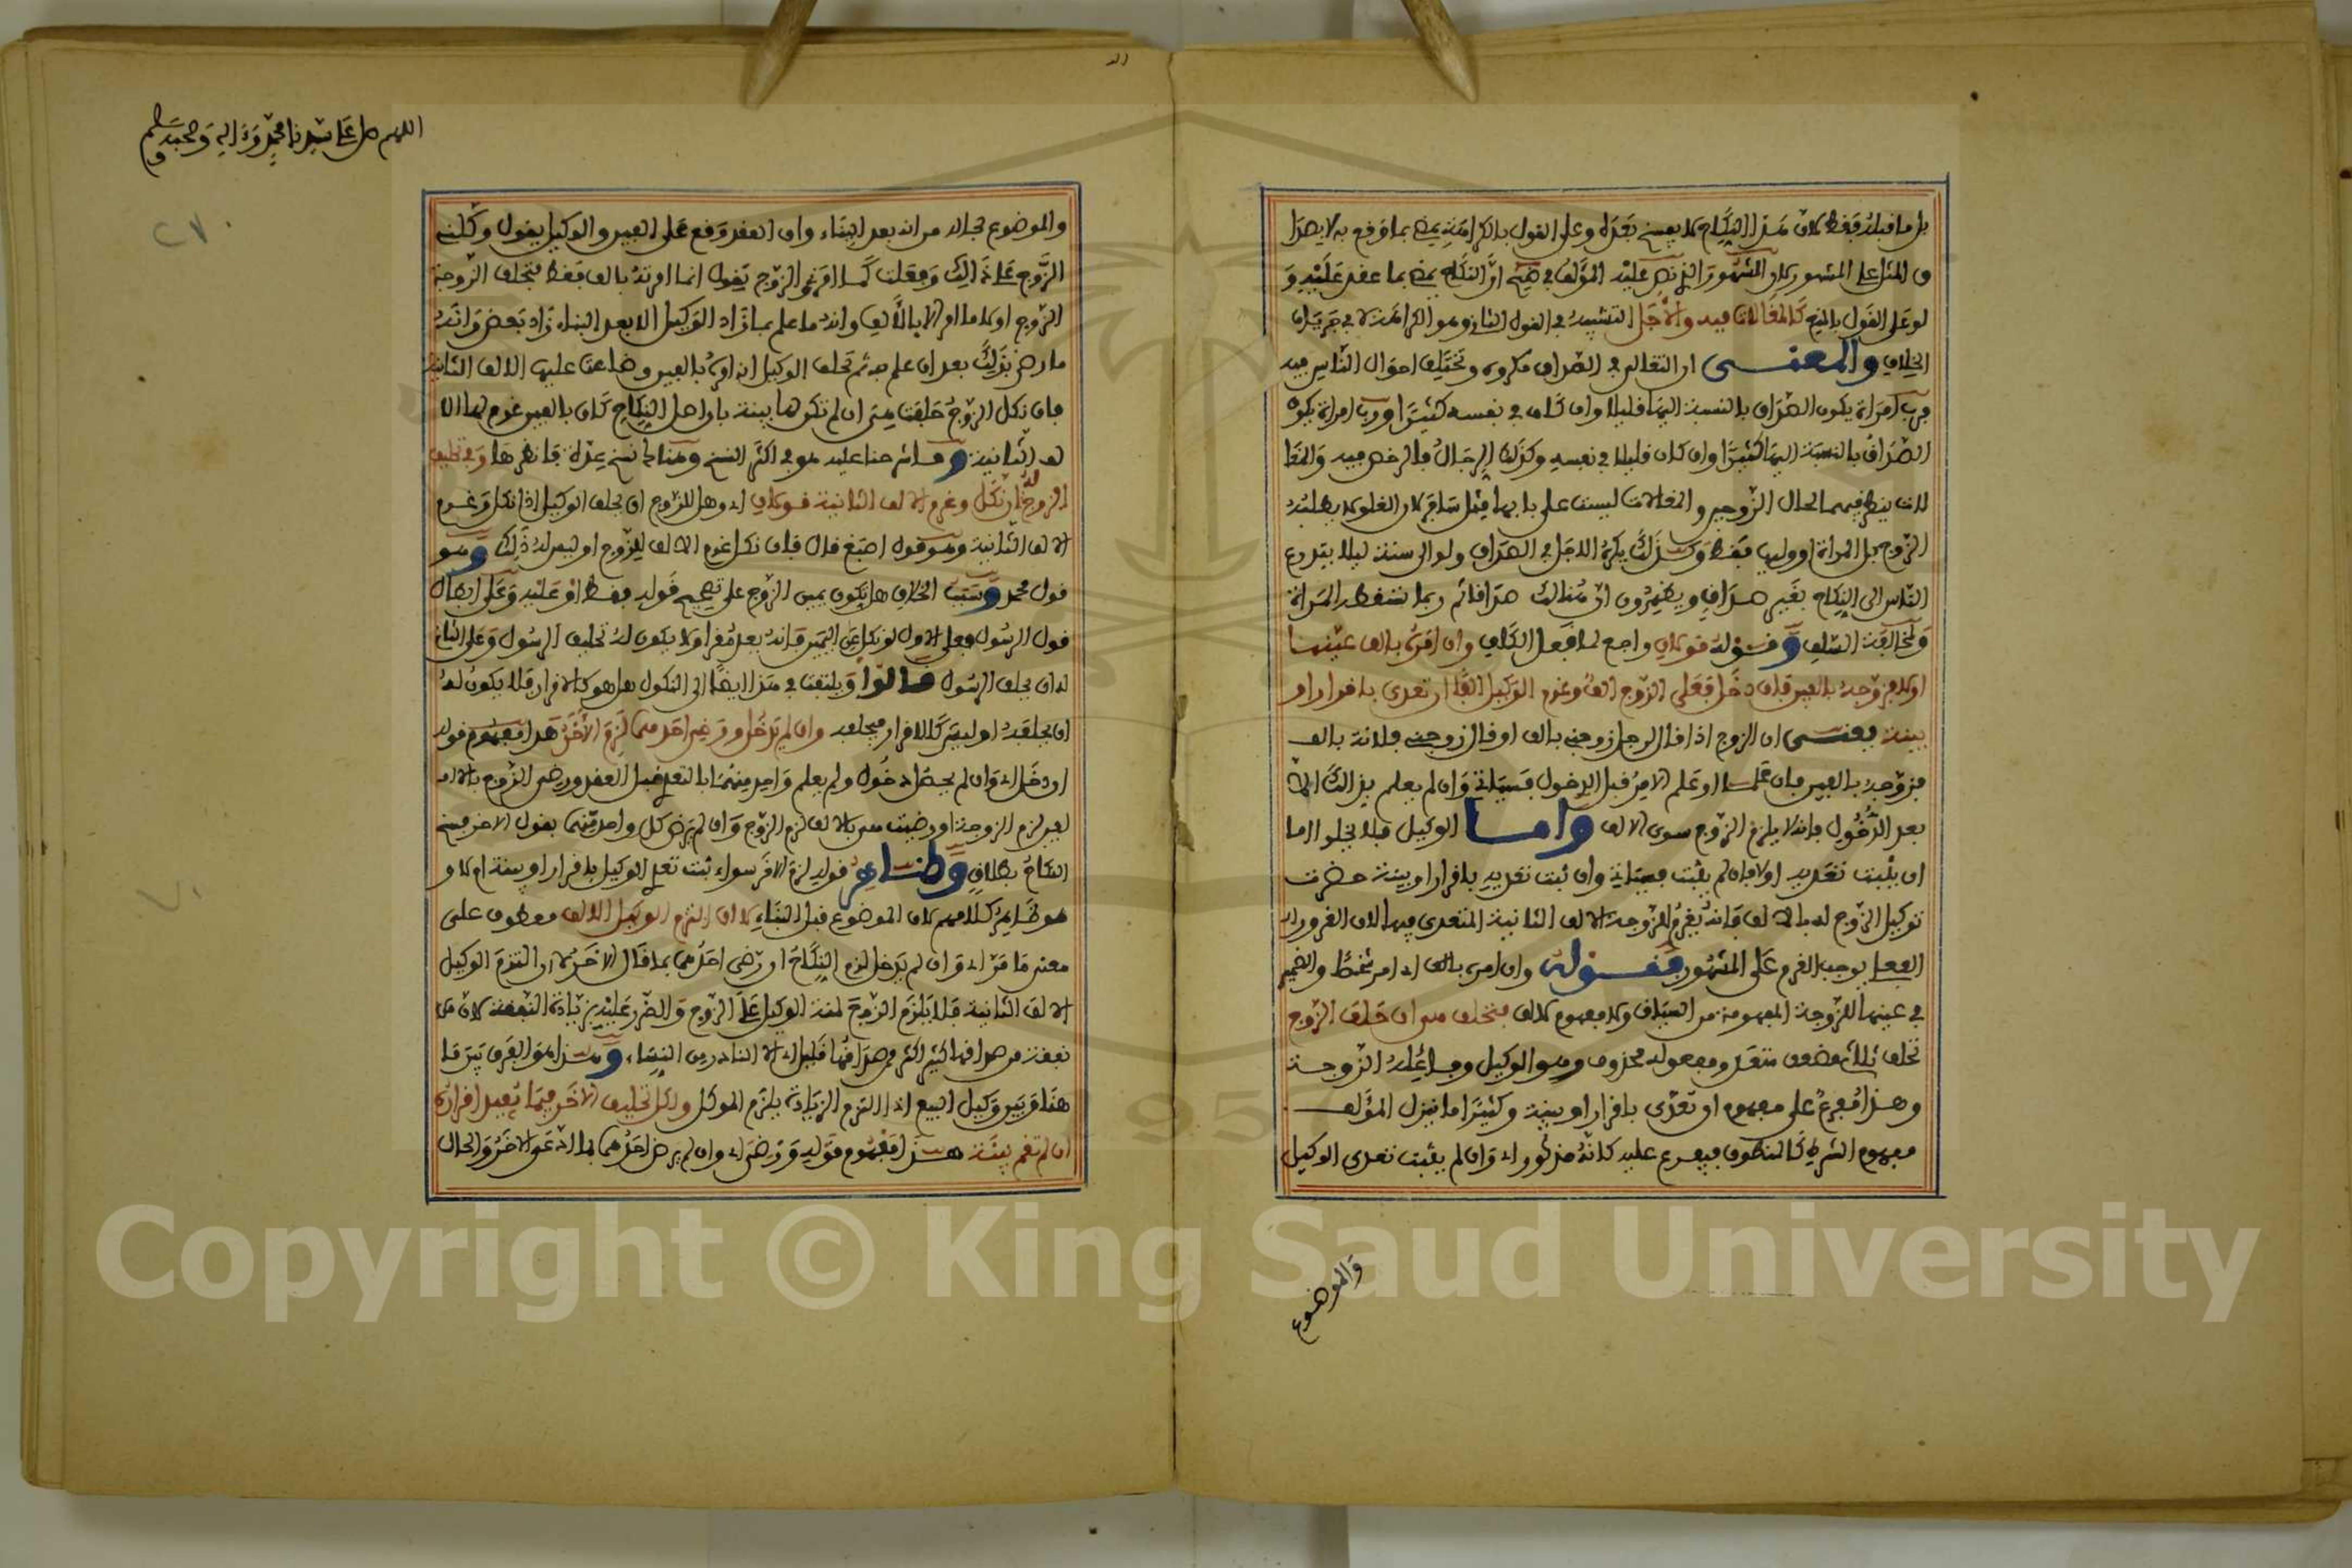 بل ما قبله فقط لان هذا النكاح لا يفسخ بعده وعلى القول بالكراهة يمضي بما وقع به لا بصدا
ق المثل على المشهور كان المشهور الذي نص عليه المؤلف في ان النكاح يمضي بما عقد عليه و
لو على القول بالمنع كالمغالات فيه والاجل التشبيه في القول الثاني وهو الكراهة لا في جريان
الخلاف والمعنى ان التغالي في الصداق مكروه وتختلف احوال الناس فيه
فرب امراة يكون الصداق بالنسبة اليها قليلا وان كان في نفسه كثيرا ورب امراة يكون
الصداق بالنسبة اليها كثيرا وان كان قليلا في نفسه وكذلك الرجال فالرخص فيه والمغا
لات ينظر فيهما لحال الزوجين والمغالات ليست على بابها مثل سافر لان الغلو لا يطلبه
الزوج بل المراة او وليها فقط وكذلك يكره الاجل في الصداق ولو الى سنة ليلا يتذرع
الناس الى النكاح بغير صداق ويظهرون ان هنالك صداقا ثم ربما تسقطه المراة
ولمخالفة السلف وقوله قولان راجع لما قبل الكاف وان امره بالف عينها
اولا فزوجه بالفين فان دخل فعلى الزوج الف وغرم الوكيل الفا ان تعدى باقرار او
بينة يعني ان الزوج اذا قال لرجل زوجني بالف او قال زوجني فلانة بالف
فزوجه بالفين فان علما او علم الامر قبل الدخول فسياتي وان لم يعلم بذالك الا
بعد الدخول فانه لا يلزم الزوج سوى الالف واما الوكيل فلا يخلوا اما
ان يثبت تعديه اولا فان لم يثبت فسياتي وان ثبت تعديه باقرار او بينة حضرت
توكيل الزوج له بالالف فانه يغرم للزوجة الالف الثانية المتعدى فيها لان الغرور
الفعلي يوجب الغرم على المشهور فقوله وان امره بالف اي امر شخصا والضمير
في عينها للزوجة المفهومة من السياق ولا مفهوم لالف فتحلف هي ان حلف الزوج
تحلف ثلاثي مضعف متعد ومفعوله محذوف وهو الوكيل وفاعله الزوجة
وهذا مفرع على مفهوم ان تعدى باقرار او بينة وكثيرا ما ينزل المؤلف
مفهوم الشرط كالمنطوق فيفرع عليه كانه مذكور اي وان لم يثبت تعدى الوكيل
والموضوع
اللهم صل على سيدنا محمد وءاله وصحبه وسلم
٢٧٠
والموضوع بحاله من انه بعد البناء وان العقد وقع على الفين والوكيل يقول وكلني
الزوج على ذالك وفعلت كما امرني والزوج يقول انما امرته بالف فقط فتحلف الزوجة
الزوج اولا ما امر الا بالالف وانه ما علم بما زاد الوكيل الا بعد البناء زاد بعض وانه
ما رضي بذلك بعد ان علم به ثم تحلف الوكيل انه امره بالفين وضاعت عليها الالف الثانية
فان نكل الزوج حلفت هي ان لم تكن لها بينة بان اصل النكاح كان بالفين غرم لها الا
لف الثانية وما شرحنا عليه هو في اكثر النسخ وهنالك نسخ عدة فانظرها وفي تحليف
الزوج له ان نكل وغرم الالف الثانية قولان اي وهل للزوج ان يحلف الوكيل اذا نكل وغرم
الالف الثانية وهو قول اصبغ قال فان نكل غرم الالف للزوج او ليس له ذلك وهو
قول محمد وسبب الخلاف هل تكون يمين الزوج على تصحيح قوله فقط او عليه وعلى ابطال
قول الرسول فعلى الاول لو نكل عن اليمين فانه يعد مقرا ولا يكون له تحليف الرسول وعلى الثاني
له ان يحلف الرسول قالوا ويلتفت في هذا ايضا الى النكول هل هو كالاقرار فلا يكون له
ان يحلفه او ليس كالاقرار فيحلفه وان لم يدخل ورضي احدهما لزم الاخر هذا مفهوم قوله
ان دخل اي وان لم يحصل دخول ولم يعلم واحد منهما بالتعدي قبل العقد ورضي الزوج بالا
لفين لزم الزوجة او رضيت هي بالالف لزم الزوج وان لم يرض كل واحد منهما بقول الاخر فسخ
النكاح بطلاق وظاهر قوله لزم الاخر سواء ثبت تعدي الوكيل باقرار او بينة ام لا و
هو ظاهر كلامهم لان الموضوع قبل البناء لا ان التزم الوكيل الالف معطوف على
معنى ما مر اي وان لم يدخل لزم النكاح ان رضي احدهما بما قال الاخر لا ان التزم الوكيل
الالف الثانية فلا يلزم الزوج لمنة الوكيل على الزوج والضرر عليه بزيادة النفقة لان من
نفقة من صداقها كثير اكثر من صداقها قليل اي لا النادر من النساء وهذا هو الفرق بين ما
هنا وبين وكيل البيع اذا التزم الزيادة يلزم الموكل ولكل تحليف الاخر فيما يفيد اقراره
ان لم تقم بينة هذا مفهوم قوله ورضي اي وان لم يرض احدهما بما ادعى الاخر والحال
Copyright © King Saud University